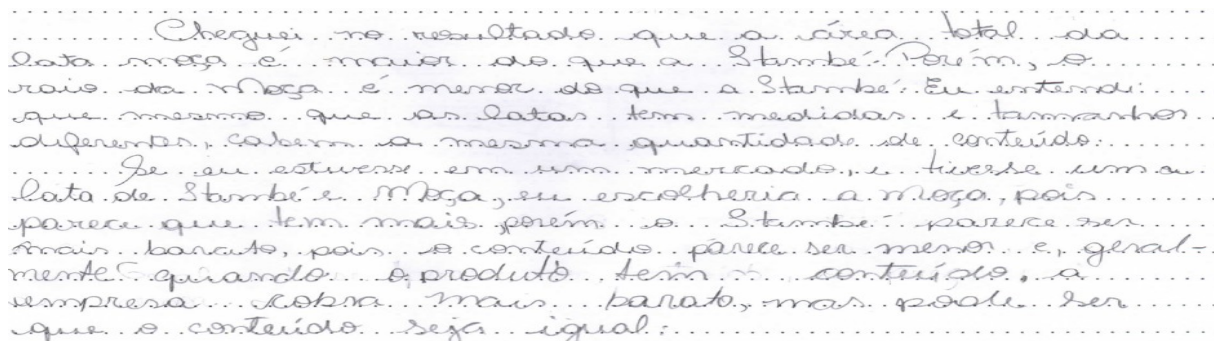 Cheguei no resultado que a área total da
lata moça é maior do que a Itambé. Porém, o
raio da Moça é menor do que a Itambé. Eu entendi
que mesmo que as latas tem medidas e tamanhos
diferentes, cabem a mesma quantidade de conteúdo.
Se eu estivesse em um mercado, e tivesse uma
lata de Itambé e Moça, eu escolheria a Moça, pois
parece que tem mais, porém o Itambé parece ser
mais barato, pois o conteúdo parece ser menor e, geral-
mente quando o produto tem conteúdo, a
empresa cobra mais barato, mas pode ser
que o conteúdo seja igual.